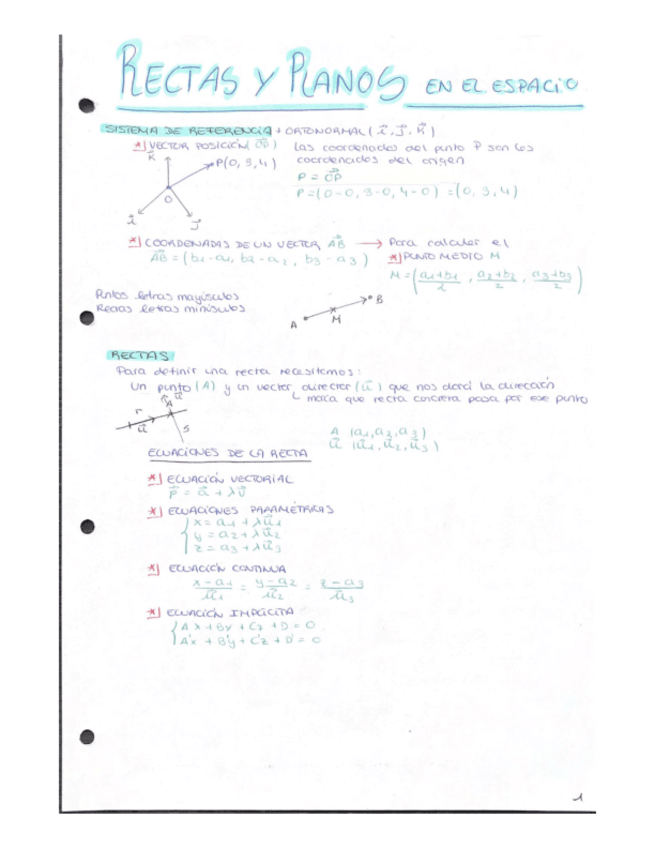 RECTAS Y PLANOS EN EL ESPACIO
SISTEMA DE REFERENCIA → ORTONORMAL (i⃗, j⃗, k⃗)
*| VECTOR POSICIÓN (OP⃗) Las coordenadas del punto P son las
coordenadas del origen
k⃗
P(0, 3, 4)
P = OP⃗
P = (0-0, 3-0, 4-0) = (0, 3, 4)
O
i⃗
j⃗
*| COORDENADAS DE UN VECTOR AB⃗ → Para calcular el
AB⃗ = (b1-a1, b2-a2, b3-a3) *| PUNTO MEDIO M
M = (a1+b1/2, a2+b2/2, a3+b3/2)
Puntos letras mayúsculas
Rectas letras minúsculas
A M B
RECTAS
Para definir una recta necesitamos:
Un punto (A) y un vector director (u⃗) que nos dará la dirección
marca que recta concreta pasa por ese punto
r u⃗ A u⃗ s
A (a1, a2, a3)
u⃗ (u⃗1, u⃗2, u⃗3)
ECUACIONES DE LA RECTA
*| ECUACIÓN VECTORIAL
p⃗ = a⃗ + λv⃗
*| ECUACIONES PARAMÉTRICAS
x = a1 + λu⃗1
y = a2 + λu⃗2
z = a3 + λu⃗3
*| ECUACIÓN CONTINUA
x-a1/u⃗1 = y-a2/u⃗2 = z-a3/u⃗3
*| ECUACIÓN IMPLÍCITA
Ax + By + Cz + D = 0
A'x + B'y + C'z + D' = 0
1